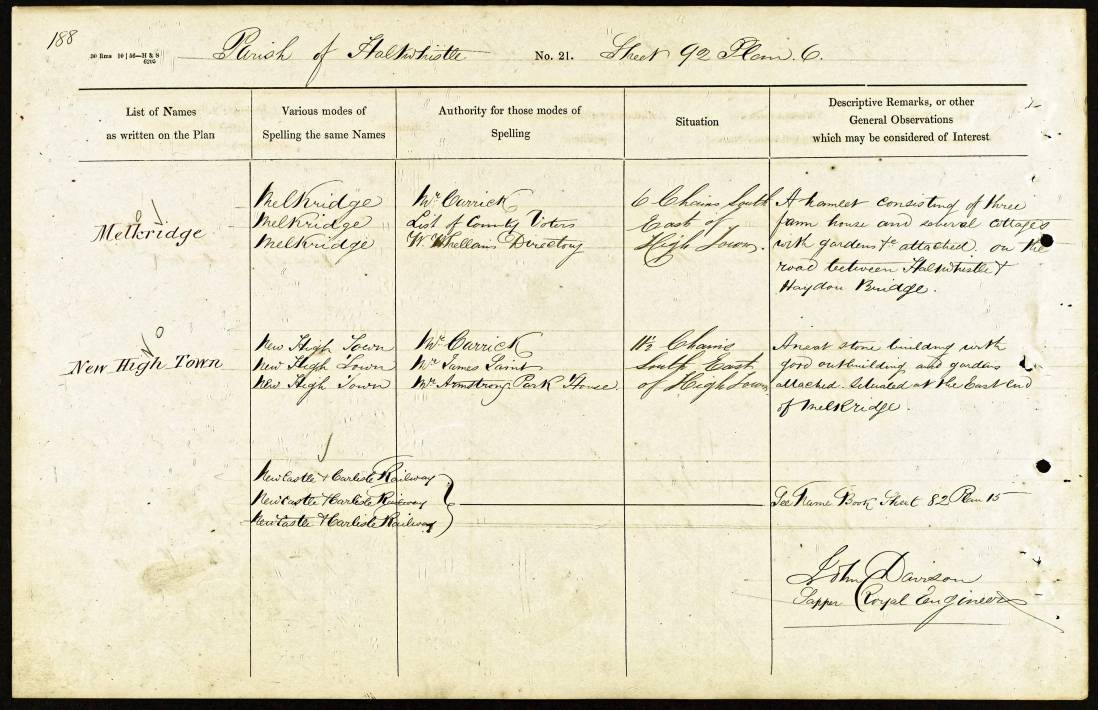 188
Parish of Haltwhistle No. 21. Sheet 92 Plan. 6.
List of Names
as written on the Plan
Various modes of
Spelling the same Names
Authority for those modes of
Spelling
Situation
Descriptive Remarks, or other
General Observations
which may be considered of Interest
Melkridge
Melkridge
Melkridge
Melkridge
Mr. Carrick
List of County Voters
W. Whellan's Directory
6 Chains South
East of
High Town.
A hamlet consisting of three
farm house and several cottages
with gardens &c attached. on the
road between Haltwhistle &
Haydon Bridge.
New High Town
New High Town
New High Town
New High Town
Mr Carrick
Mr James Saint
Mr Armstrong Park House
11½ Chains
South East
of High Town
A neat stone building with
good outbuilding and gardens
attached. Situated at the East End
of Melkridge.
Newcastle & Carlisle Railway
Newcastle & Carlisle Railway
Newcastle & Carlisle Railway
See Name Book Sheet 82 Plan 15
John Davison
Sapper Royal Engineers